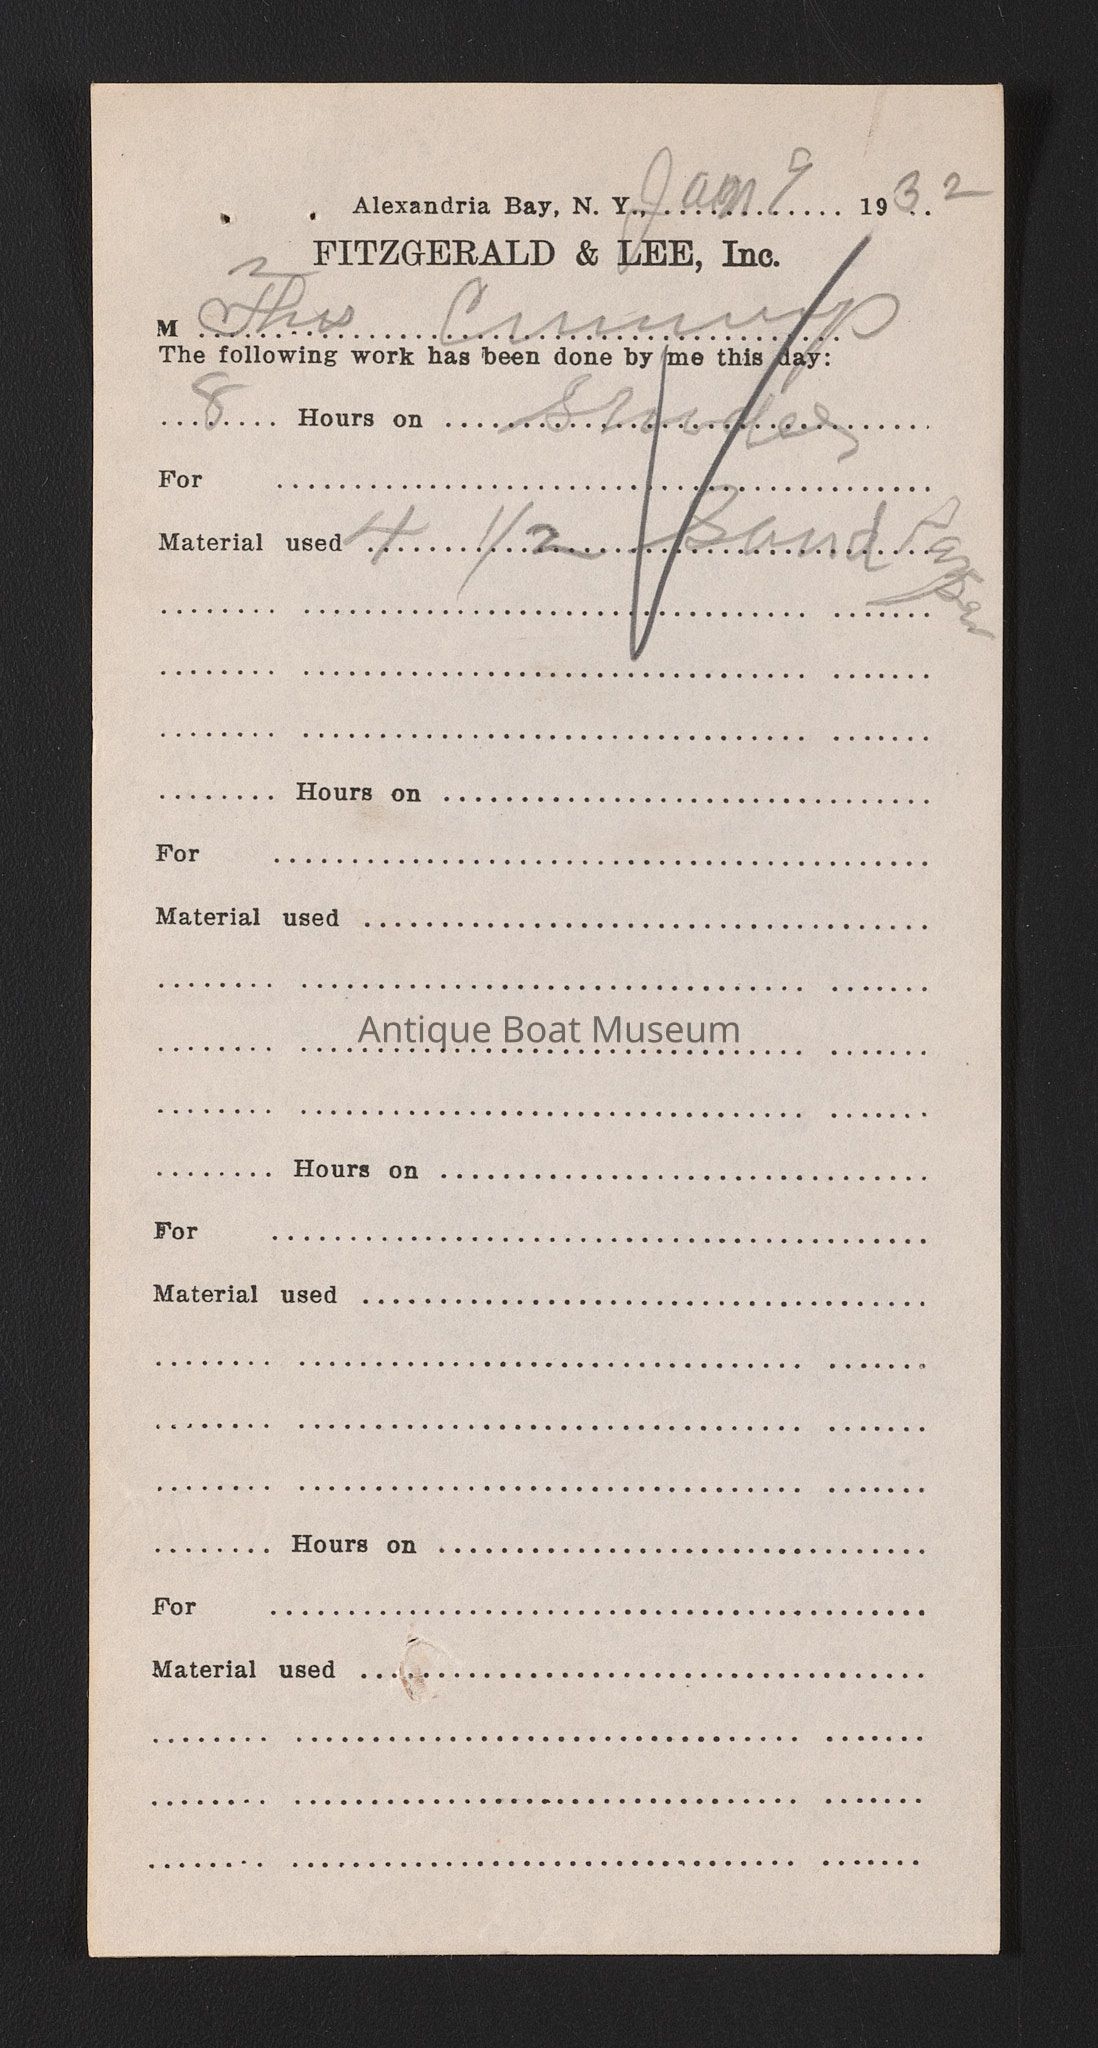 Alexandria Bay, N. Y., Jan 9 1932
FITZGERALD & LEE, Inc.
M Thos
The following work has been done by me this day:
8 Hours on
For
Material used 4 1/2 Sand Paper
Hours on
For
Material used
Antique Boat Museum
Hours on
For
Material used
Hours on
For
Material used